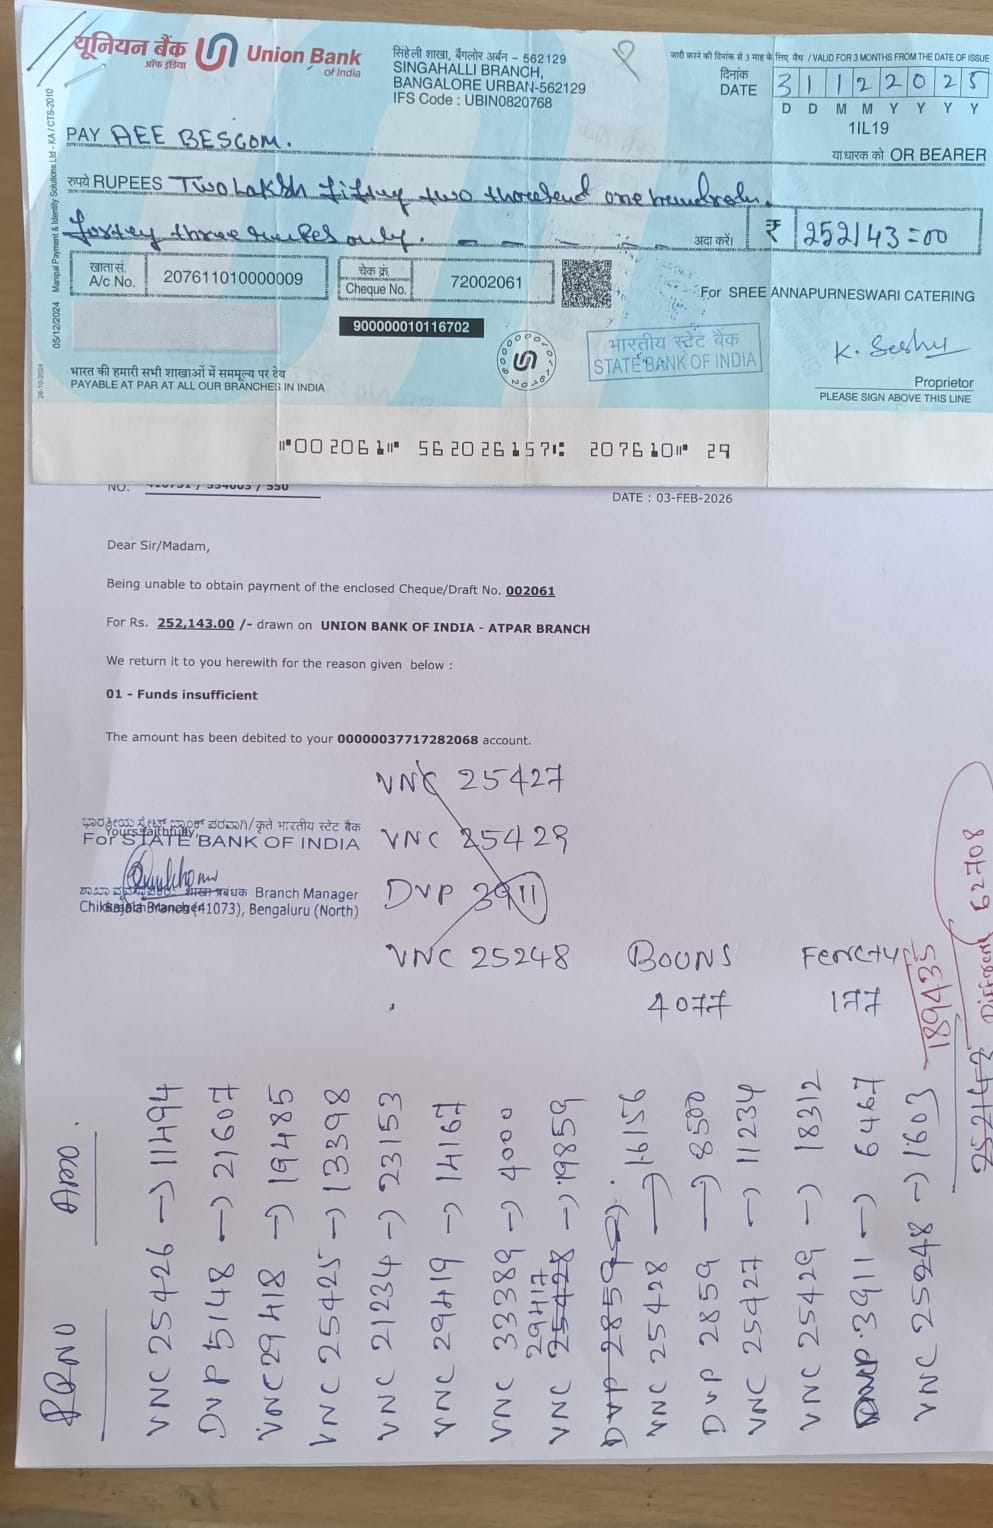 यूनियन बैंक
ऑफ इंडिया
Union Bank
of India
सिंहेली शाखा, बैंगलोर अर्बन - 562129
SINGAHALLI BRANCH,
BANGALORE URBAN-562129
IFS Code : UBIN0820768
जारी करने की दिनांक से 3 माह के लिए वैध / VALID FOR 3 MONTHS FROM THE DATE OF ISSUE
दिनांक
DATE 31122025
D D M M Y Y Y Y
1IL19
PAY AEE BESCOM.
या धारक को OR BEARER
रुपये RUPEES Two Laksh fifty two thousend one hundredu.
fortey three rupees only.
अदा करें। ₹ 252143=00
खाता सं. A/c No. 207611010000009
चेक क्रं. Cheque No. 72002061
For SREE ANNAPURNESWARI CATERING
900000010116702
भारतीय स्टेट बैंक
STATE BANK OF INDIA
K. Seshu
Proprietor
PLEASE SIGN ABOVE THIS LINE
भारत की हमारी सभी शाखाओं में सममूल्य पर देय
PAYABLE AT PAR AT ALL OUR BRANCHES IN INDIA
05/12/2024 Manipal Payment & Identity Solutions Ltd - KA / CTS-2010
26-10-2024
002061 562026157 207610 29
NO. 410731 / 334003 / 550
DATE : 03-FEB-2026
Dear Sir/Madam,
Being unable to obtain payment of the enclosed Cheque/Draft No. 002061
For Rs. 252,143.00 /- drawn on UNION BANK OF INDIA - ATPAR BRANCH
We return it to you herewith for the reason given below :
01 - Funds insufficient
The amount has been debited to your 00000037717282068 account.
VNC 25427
VNC 25429
DVP 3911
VNC 25248
Yours faithfully,
For STATE BANK OF INDIA
Branch Manager
Chikkajala Branch (41073), Bengaluru (North)
BOUNS
4077
177
RRNO
VNC 25426 → 11494
DVP 5148 → 21607
VNC 29418 → 19485
VNC 25425 → 13398
VNC 21234 → 23153
VNC 29419 → 14167
VNC 33389 → 4000
29417
VNC 25428 → 19859
DVP 2859
VNC 25428 → 16156
DVP 2859 → 8500
VNC 25427 → 11234
VNC 25429 → 18312
DVP 3911 → 6467
VNC 25248 → 1603
189435
252143
Different 62708